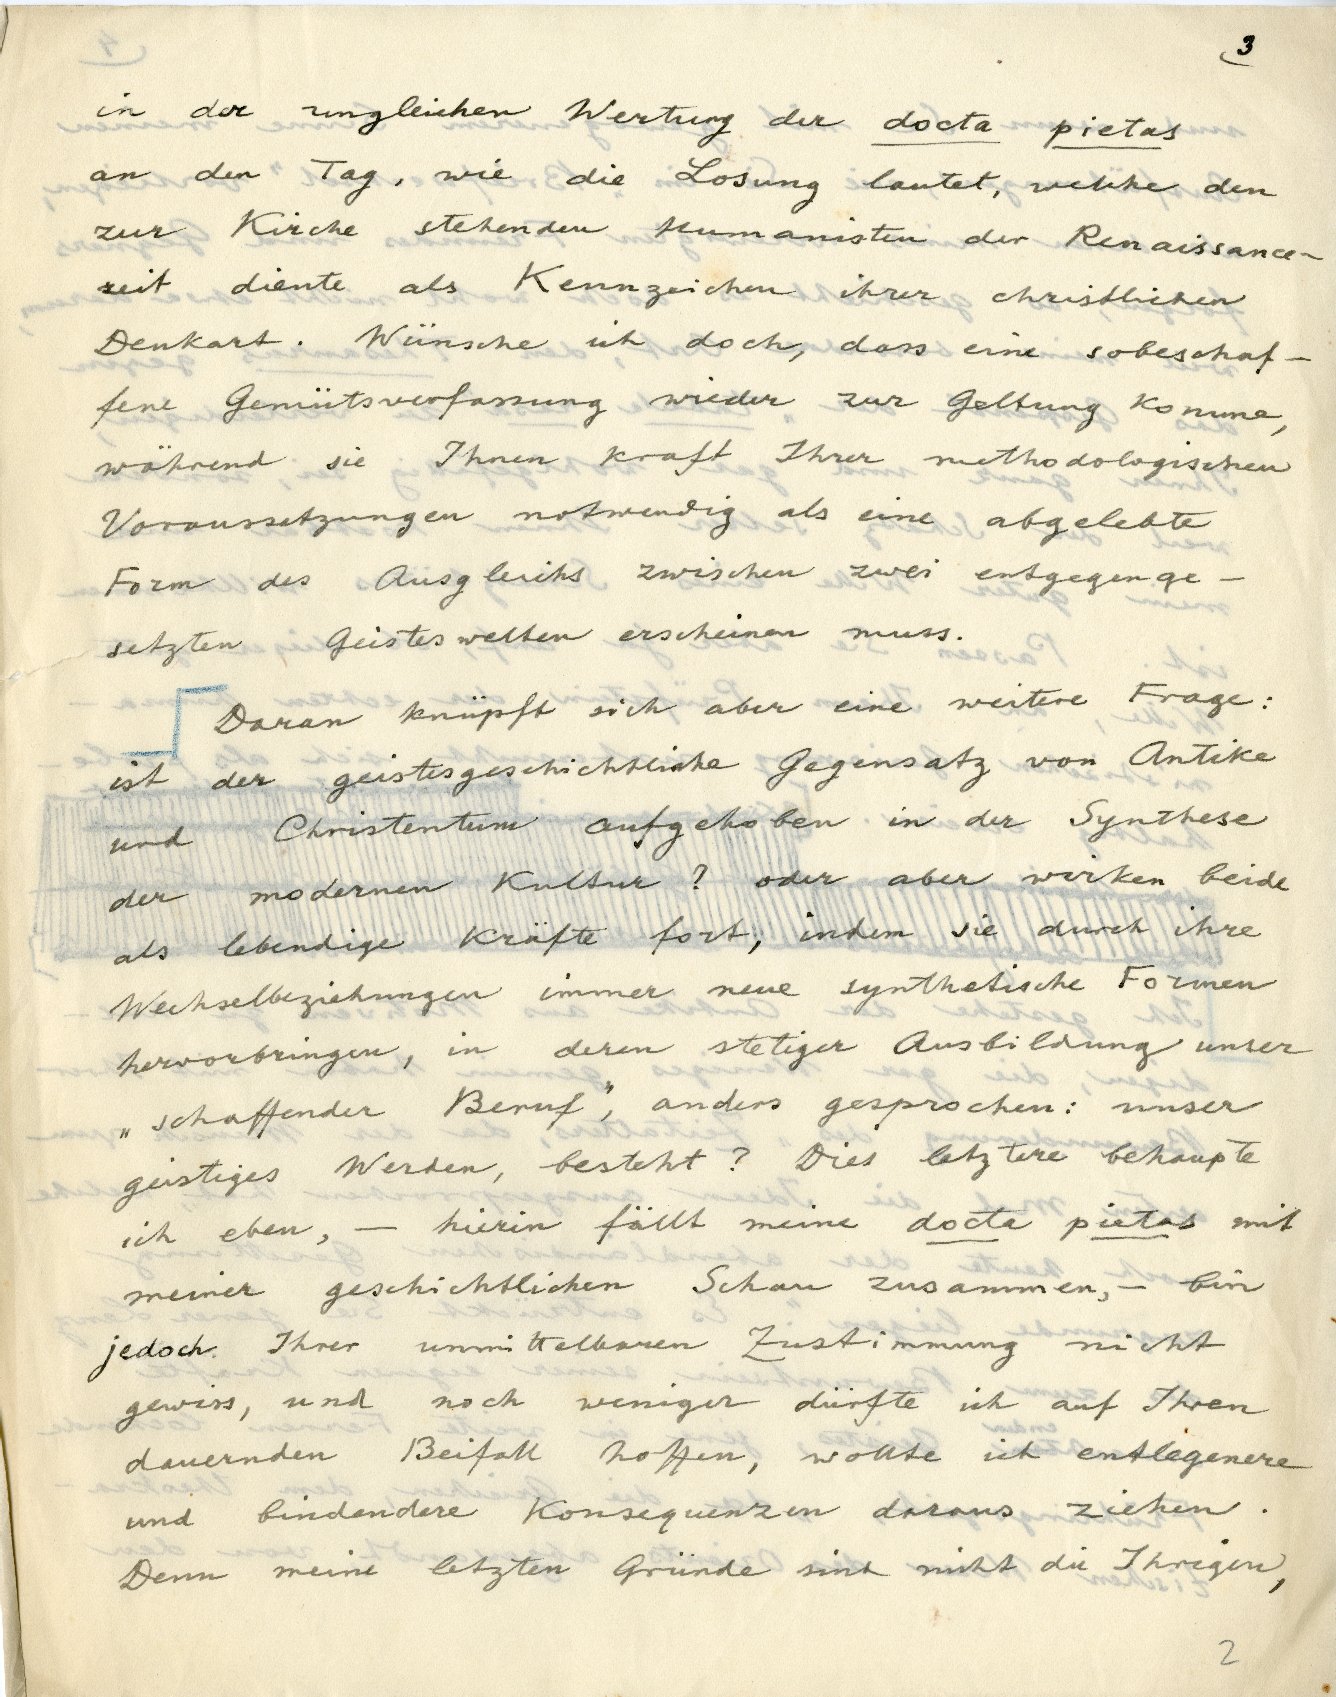 3
in der ungleichen Wertung der docta pietas
an den Tag, wie die Losung lautet, welche den
zur Kirche stehenden Humanisten der Renaissance-
zeit diente als Kennzeichen ihrer christlichen
Denkart. Wünsche ich doch, dass eine sobeschaf-
fene Gemütsverfassung wieder zur Geltung komme,
während sie Ihnen kraft Ihrer methodologischen
Voraussetzungen notwendig als eine abgelebte
Form des Ausgleichs zwischen zwei entgegenge-
setzten Geisteswelten erscheinen muss.
Daran knüpft sich aber eine weitere Frage:
ist der geistesgeschichtliche Gegensatz von Antike
und Christentum aufgehoben in der Synthese
der modernen Kultur? oder aber wirken beide
als lebendige Kräfte fort, indem sie durch ihre
Wechselbeziehungen immer neue synthetische Formen
hervorbringen, in deren stetiger Ausbildung unser
„schaffender Beruf”, anders gesprochen: unser
geistiges Werden, besteht? Dies letztere behaupte
ich eben, — hierin fällt meine docta pietas mit
meiner geschichtlichen Schau zusammen, — bin
jedoch Ihrer unmittelbaren Zustimmung nicht
gewiss, und noch weniger dürfte ich auf Ihren
dauernden Beifall hoffen, wollte ich entlegenere
und bindendere Konsequenzen daraus ziehen.
Denn meine letzten Gründe sind nicht die Ihrigen,
2